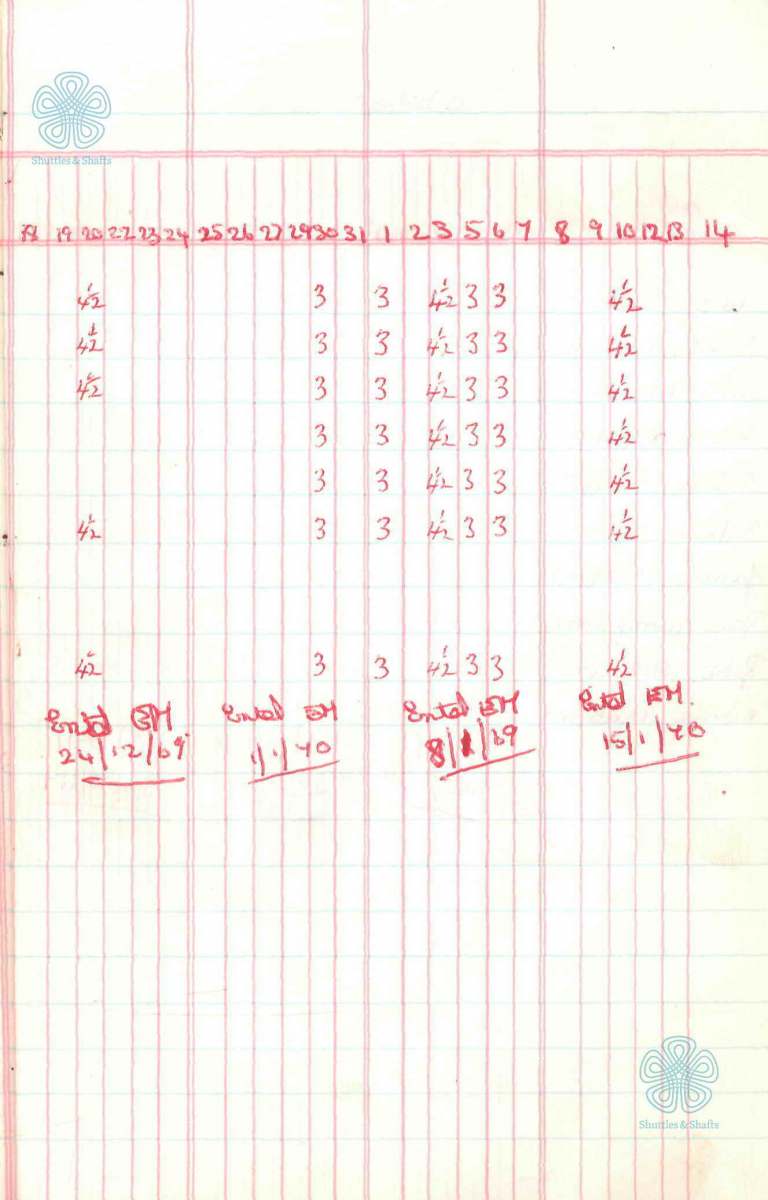 Shuttles & Shafts
18 19 20 22 23 24 25 26 27 29 30 31 1 2 3 5 6 7 8 9 10 12 13 14
4½ 3 3 4½ 3 3 4½
4½ 3 3 4½ 3 3 4½
4½ 3 3 4½ 3 3 4½
3 3 4½ 3 3 4½
3 3 4½ 3 3 4½
4½ 3 3 4½ 3 3 4½
4½ 3 3 4½ 3 3 4½
Entd EM Entd EM Entd EM Entd EM.
24/12/69 1/1/70 8/1/69 15/1/70
Shuttles & Shafts